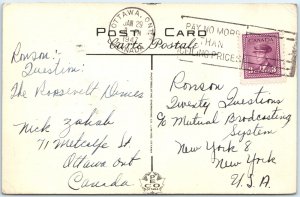 OTTAWA, ONT.
JAN 29
POST CARD
Carte Postale
PAY NO MORE
THAN
CEILING PRICES
Ronson:
Question:
The Roosevelt Dimes
Nick Zahab
71 Metcalfe St
Ottawa Ont
Canada
Ronson
Twenty Questions
c/o Mutual Brodcasting
System
New York 8
New York
U.S.A